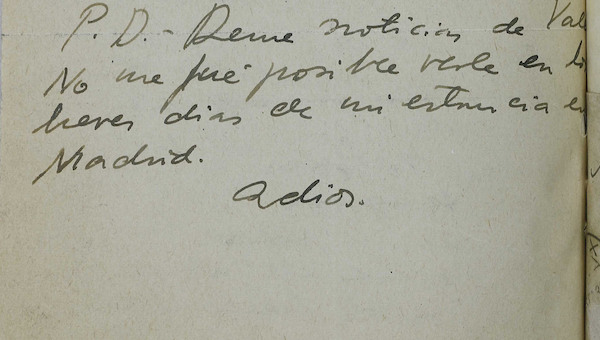 P. D.- Deme noticias de Val
No me fué posible verle en
breves dias de mi estancia en
Madrid.
Adios.